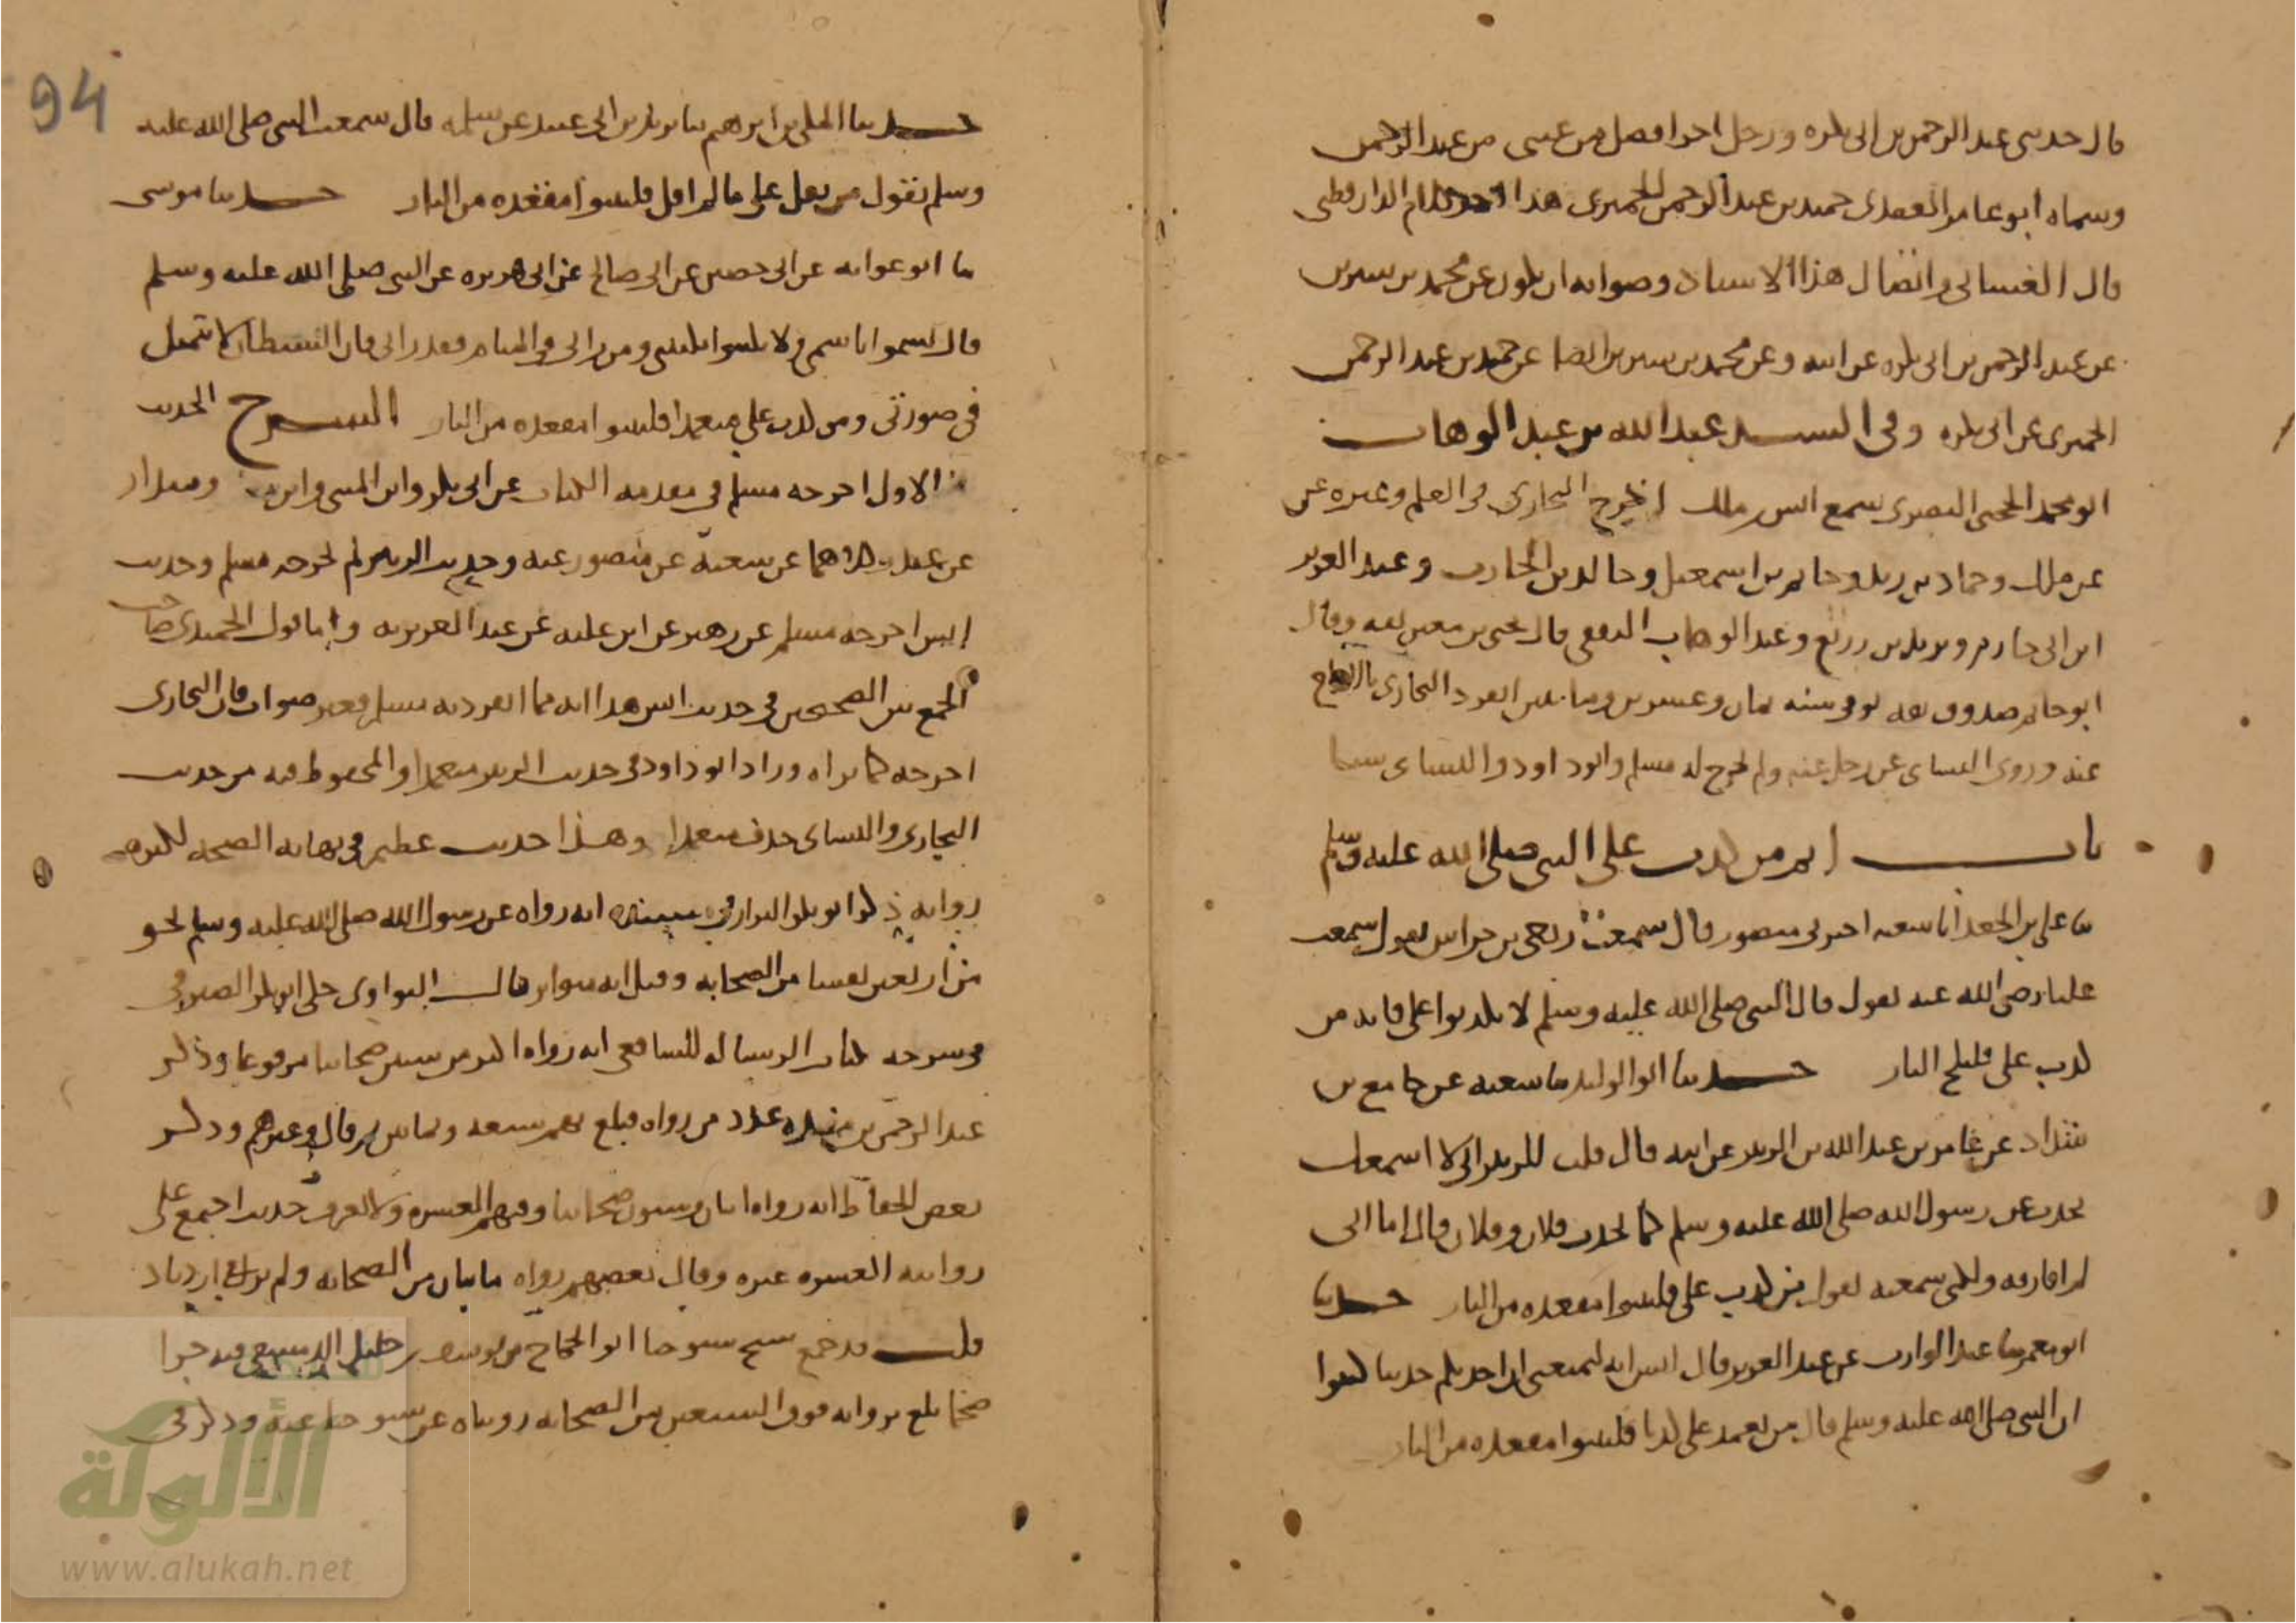 قال حدثني عبد الرحمن بن ابي بكره ورجل اخر افضل من عيني من عبد الرحمن
وسماه ابو عامر العقدي حميد بن عبد الرحمن الحميري هذا كلام الدارقطني
قال الغساني واتصال هذا الاسناد وصوابه ان يكون عن محمد بن سيرين
عن عبد الرحمن بن ابي بكره عن ابيه وعن محمد بن سيرين ايضا عن حميد بن عبد الرحمن
الحميري عن ابي بكره وفي السند عبد الله بن عبد الوهاب
ابو محمد الحجبي البصري سمع انس ملك اخرج البخاري في العلم وغيره عن
عن ملك وحماد بن زيد وحاتم بن اسمعيل وخالد بن الحارث وعبد العزيز
ابن ابي حازم ويزيد بن زريع وعبد الوهاب الثقفي قال يحيى بن معين ثقه وقال
ابو حاتم صدوق ثقه توفي سنه ثمان وعشرين ومائتين انفرد البخاري بالاخراج
عنه وروى النساي عن رجل عنه ولم يخرج له مسلم وابو داود والنساي شيئا
باب اثم من كذب على النبي صلى الله عليه وسلم
ثنا علي بن الجعد انا شعبه اخبرني منصور قال سمعت ربعي بن حراش يقول سمعت
عليا رضي الله عنه يقول قال النبي صلى الله عليه وسلم لا تكذبوا علي فانه من
كذب علي فليلج النار حدثنا ابو الوليد ثنا شعبه عن جامع بن
شداد عن عامر بن عبد الله بن الزبير عن ابيه قال قلت للزبير اني لا اسمعك
تحدث عن رسول الله صلى الله عليه وسلم كما يحدث فلان وفلان قال اما اني
لم افارقه ولكني سمعته يقول من كذب علي فليتبوا مقعده من النار حدثنا
ابو معمر ثنا عبد الوارث عن عبد العزيز قال انس انه ليمنعني ان احدثكم حديثا كثيرا
ان النبي صلى الله عليه وسلم قال من تعمد علي كذبا فليتبوا مقعده من النار
94
حدثنا المكي بن ابرهيم ثنا يزيد بن ابي عبيد عن سلمه قال سمعت النبي صلى الله عليه
وسلم يقول من يقل علي ما لم اقل فليتبوا مقعده من النار حدثنا موسى
ثنا ابو عوانه عن ابي حصين عن ابي صالح عن ابي هريره عن النبي صلى الله عليه وسلم
قال تسموا باسمي ولا تكنوا بكنيتي ومن راني في المنام فقد راني فان الشيطان لا يتمثل
في صورتي ومن كذب علي متعمدا فليتبوا مقعده من النار الشرح الحديث
الاول اخرجه مسلم في مقدمه الكتاب عن ابي بكر وابن المثنى وابن وبندار
عن غندر كلاهما عن شعبة عن منصور عنه وحديث الزبير لم يخرجه مسلم وحديث
انس اخرجه مسلم عن زهير عن ابن عليه عن عبد العزيز به واما قول الحميدي صاحب
الجمع بين الصحيحين في حديث انس هذا انه مما انفرد به مسلم فغير صواب فان البخاري
اخرجه كما تراه وزاد ابو داود في حديث الزبير متعمدا والمحفوظ فيه من حديث
البخاري والنساي حذف متعمدا وهذا حديث عظيم في نهايه الصحه لكثره
رواته ذكر ابو بكر البزار في مسنده انه رواه عن رسول الله صلى الله عليه وسلم نحو
من اربعين نفسا من الصحابه وقيل انه متواتر قال النواوي حكى ابو بكر الصيرفي
في شرحه لكتاب الرساله للشافعي انه رواه اكثر من ستين صحابيا مرفوعا وذكر
عبد الرحمن بن منده عدد من رواه فبلغ بهم سبعه وثمانين ثم قال وغيرهم وذكر
بعض الحفاظ انه رواه اثنان وستون صحابيا وفيهم العشره ولا يعرف حديث اجتمع على
روايته العشره غيره وقال بعضهم رواه مايتان من الصحابه ولم يزل في ازدياد
قلت قد جمع شيخ شيوخنا ابو الحجاج يوسف بن خليل الدمشقي فيه جزا
ضخما بلغ برواته فوق السبعين من الصحابه رويناه عن شيوخنا عنه وذكر في
الألوكة
www.alukah.net